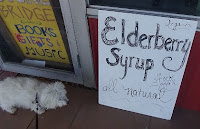 BRIDGE
BOOKS
GIFTS
MUSIC
Elderberry
Syrup
all natural